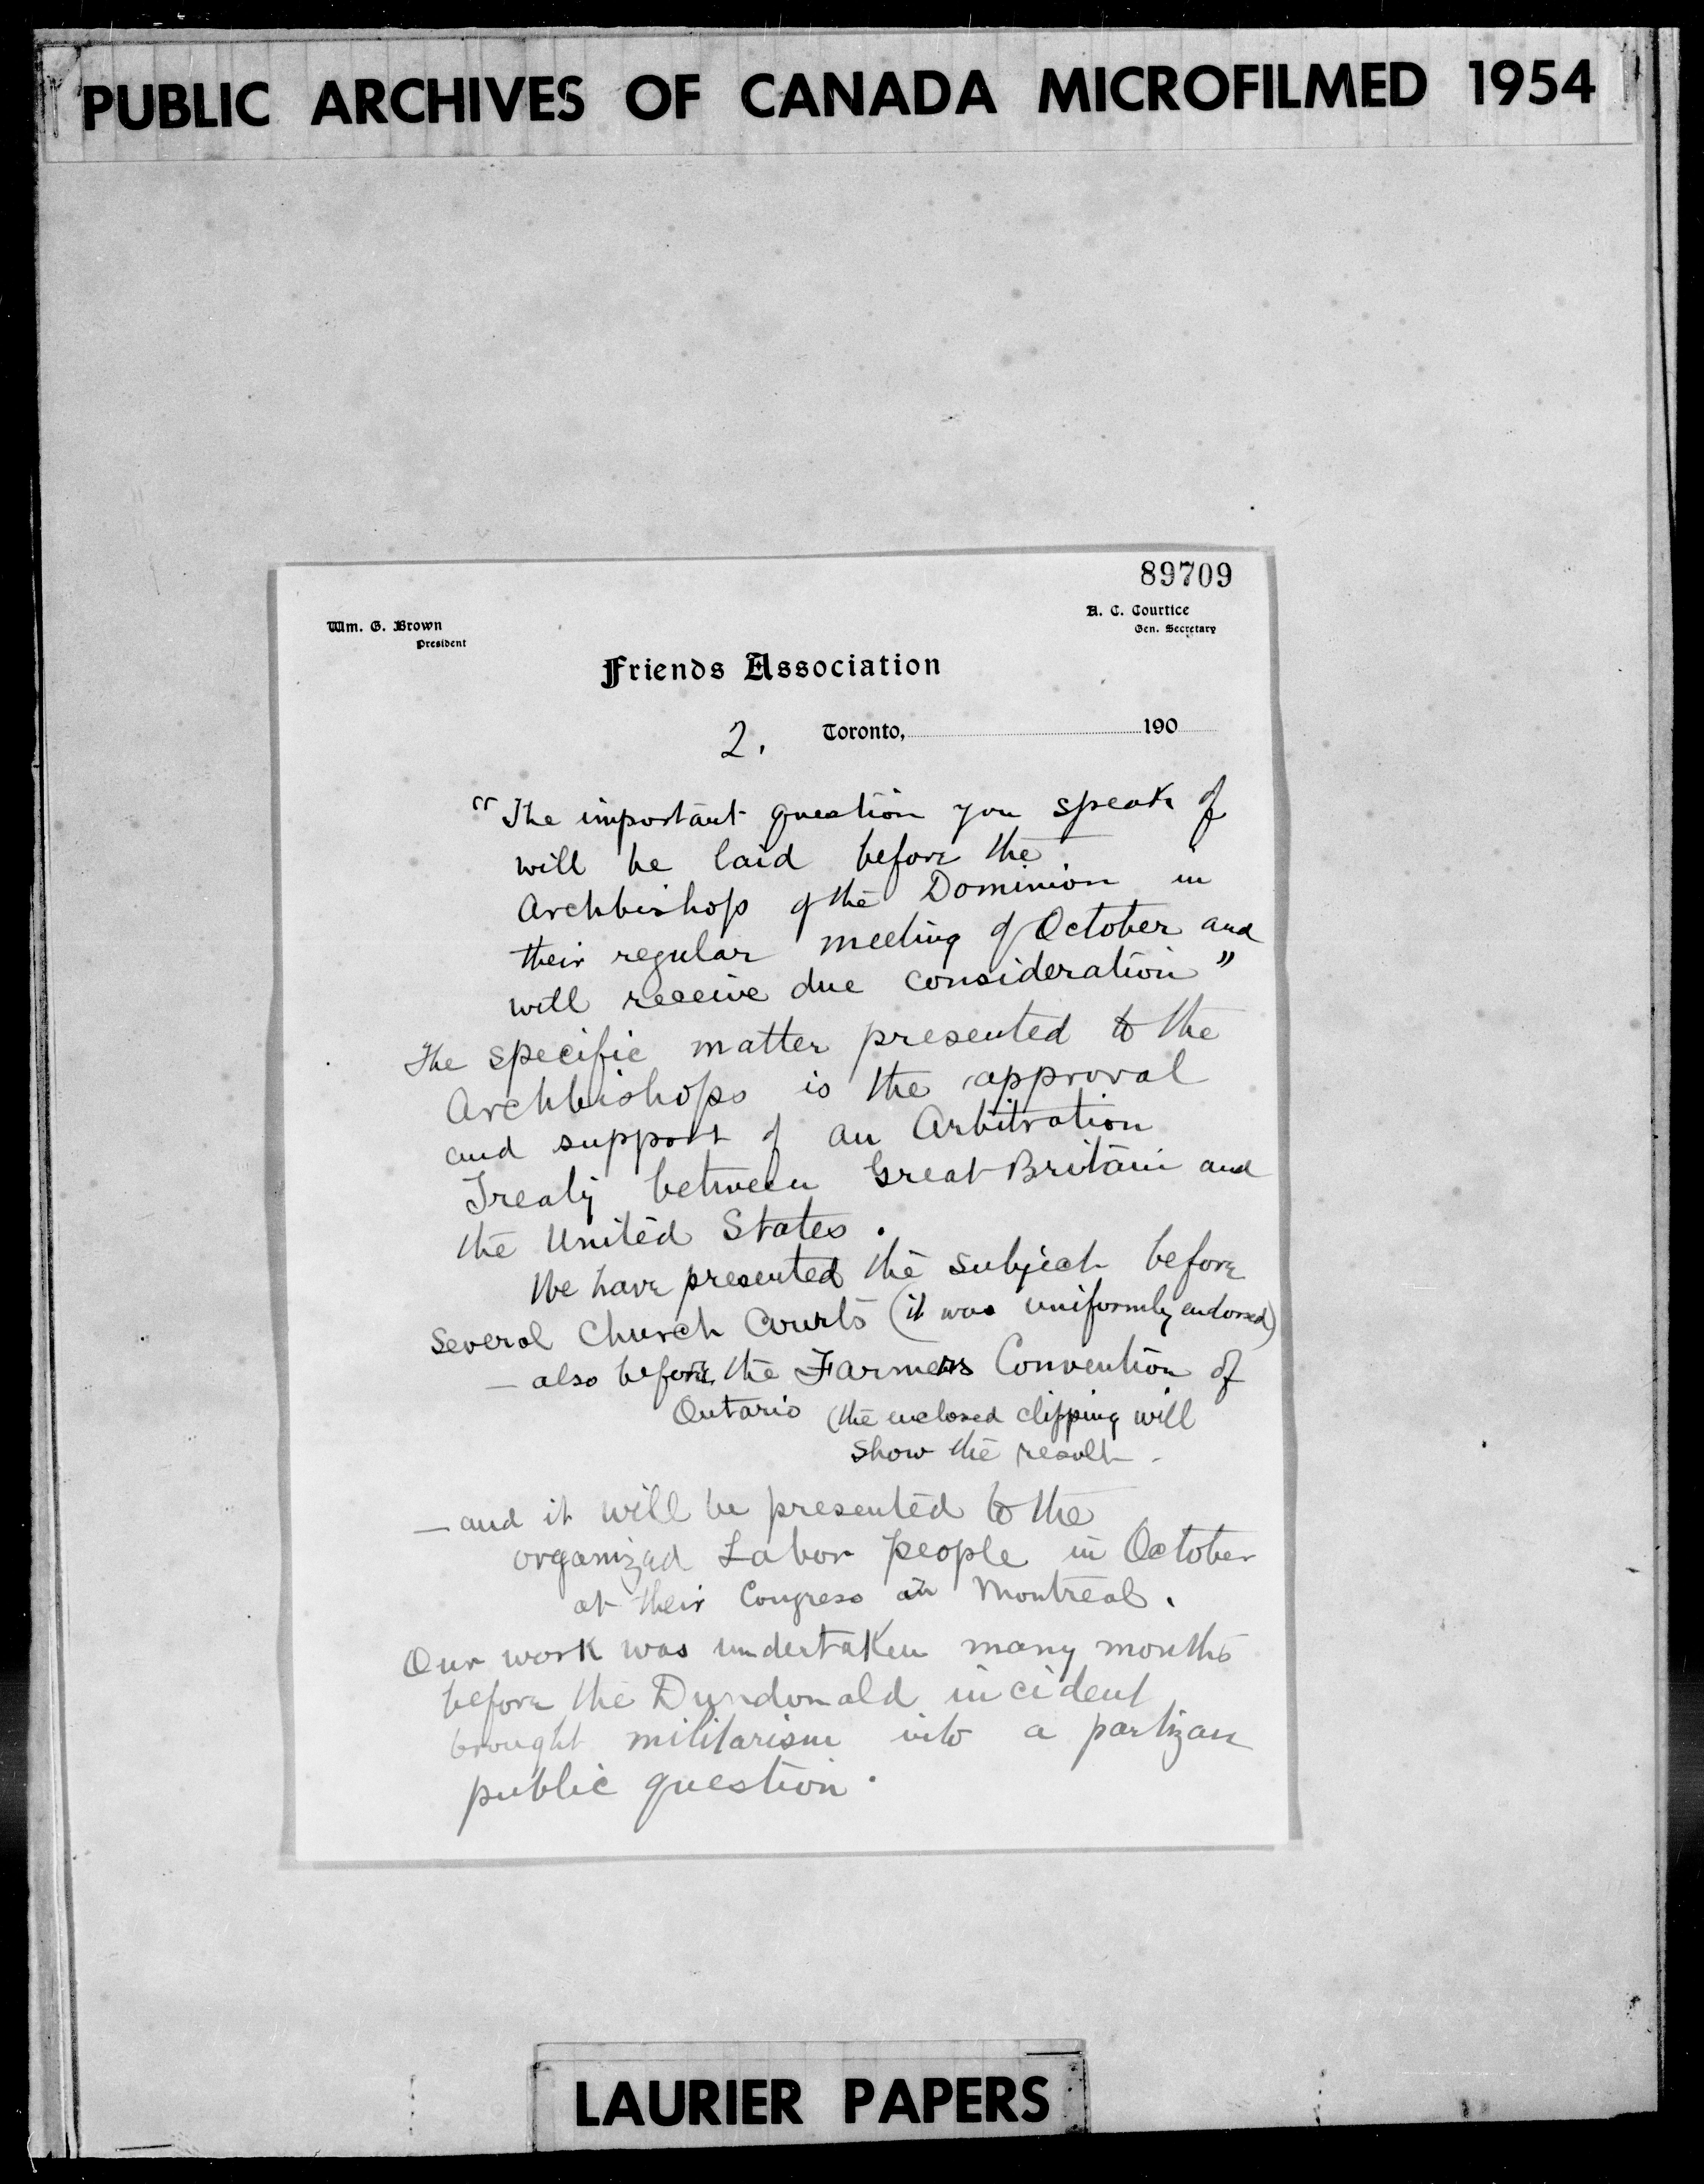 PUBLIC ARCHIVES OF CANADA MICROFILMED 1954
89709
Wm. G. Brown
President
A. C. Courtice
Gen. Secretary
Friends Association
2. Toronto, 190
"The important question you speak of
will be laid before the
Archbishops of the Dominion in
their regular meeting of October and
will receive due consideration"
The specific matter presented to the
Archbishops is the approval
and support of an Arbitration
Treaty between Great Britain and
the United States.
We have presented the subject before
Several Church Courts (it was uniformly endorsed)
— also before the Farmers Convention of
Ontario (the enclosed clipping will
show the result -
— and it will be presented to the
organized Labor people in October
at their Congress in Montreal.
Our work was undertaken many months
before the Dundonald incident
brought militarism into a partizan
public question.
LAURIER PAPERS